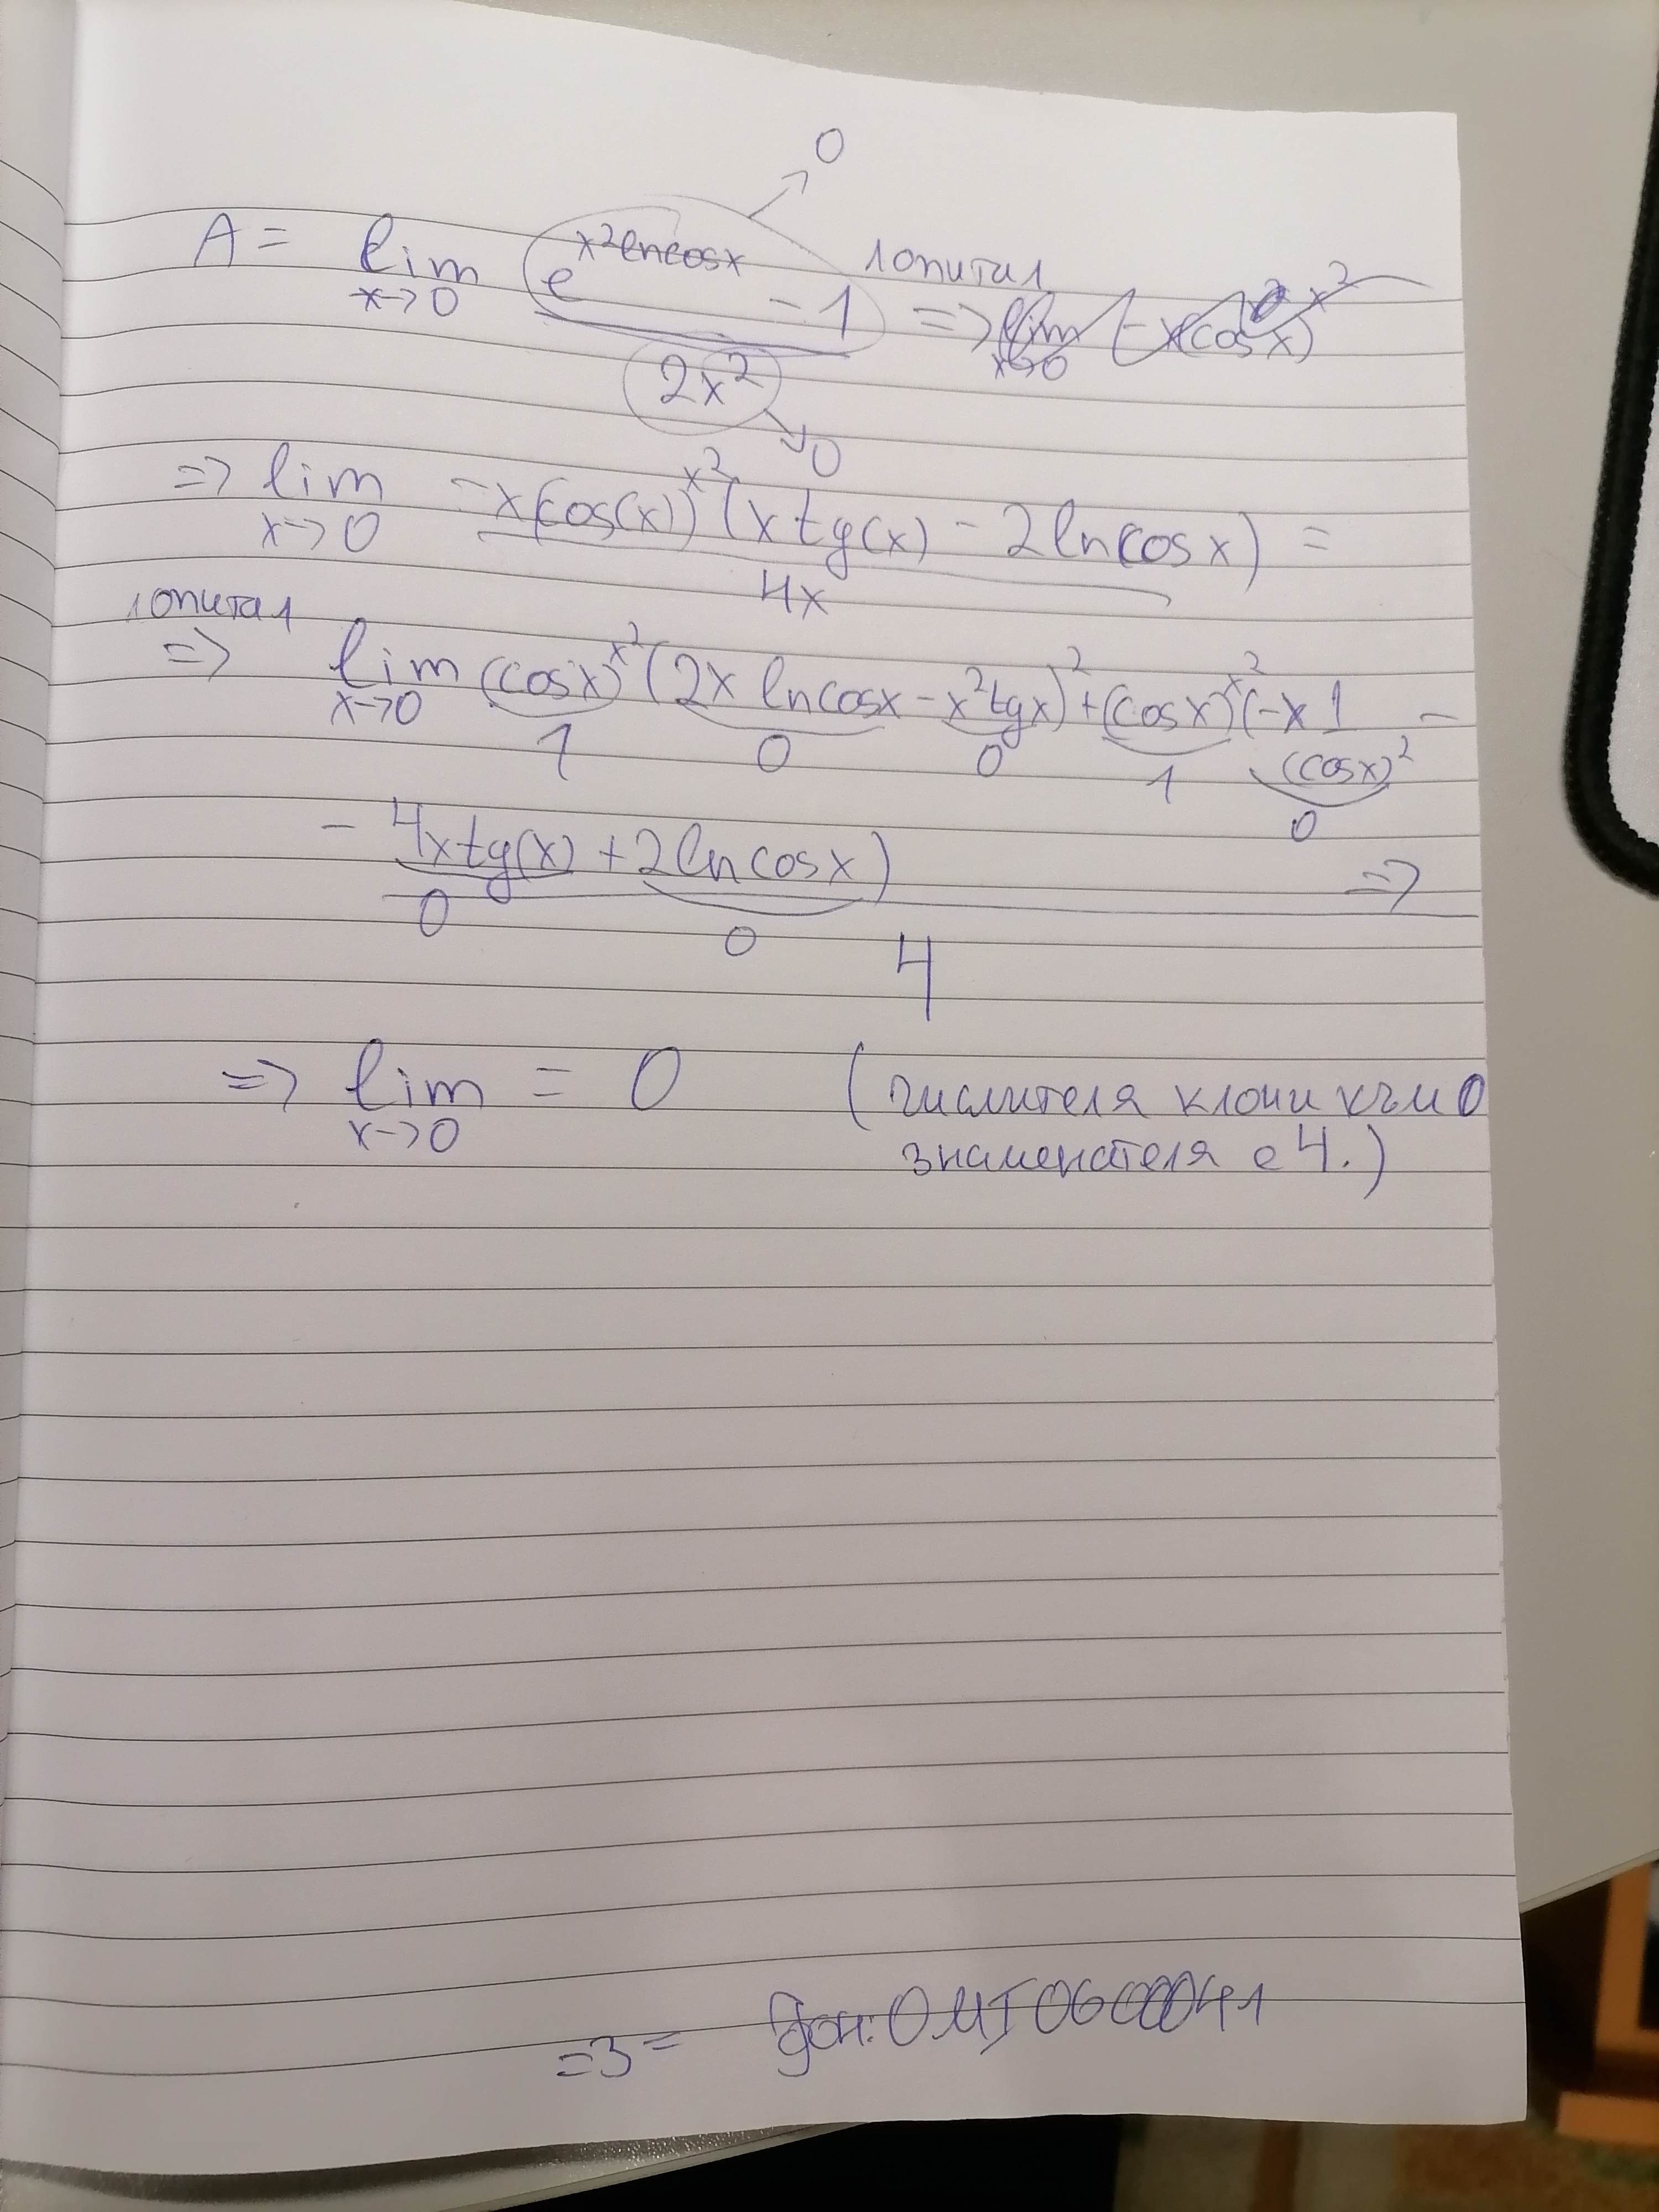 0
A = lim x→0 (e^(x² ln cosx) - 1) / 2x² лопитал => lim x→0 (-x(cos x)^x²
0
=> lim x→0 -x(cos(x))^x² (x tg(x) - 2 ln(cos x) / 4x =
лопитал
=> lim x→0 (cosx)^x² (2x ln cosx - x² tgx)² + (cosx)^x² (-x 1 / (cosx)² -
1 0 0 1 0
- 4x tg(x) + 2 ln cosx) =>
0 0 4
=> lim x→0 = 0 (числителя клони към 0
знаменателя е 4.)
=3=